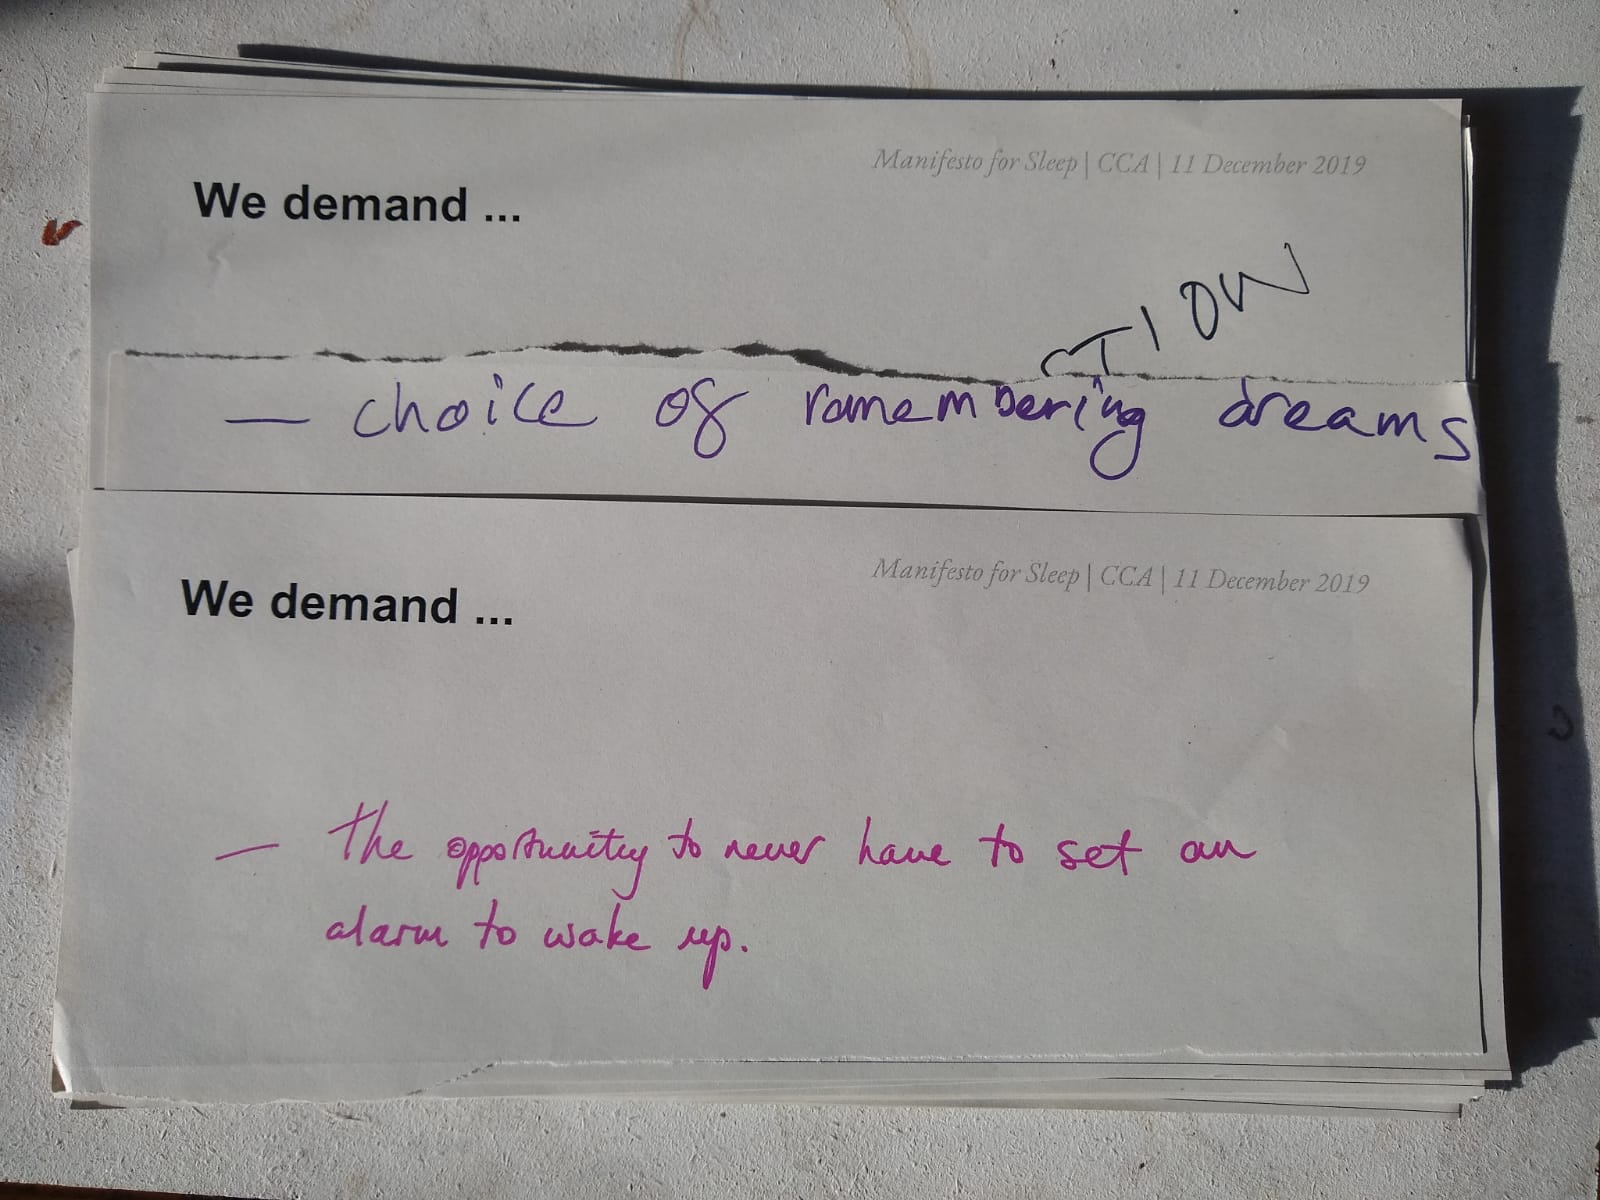 Manifesto for Sleep | CCA | 11 December 2019
We demand ...
CTION
— choice of romembering dreams
Manifesto for Sleep | CCA | 11 December 2019
We demand ...
— the opportunity to never have to set an
alarm to wake up.